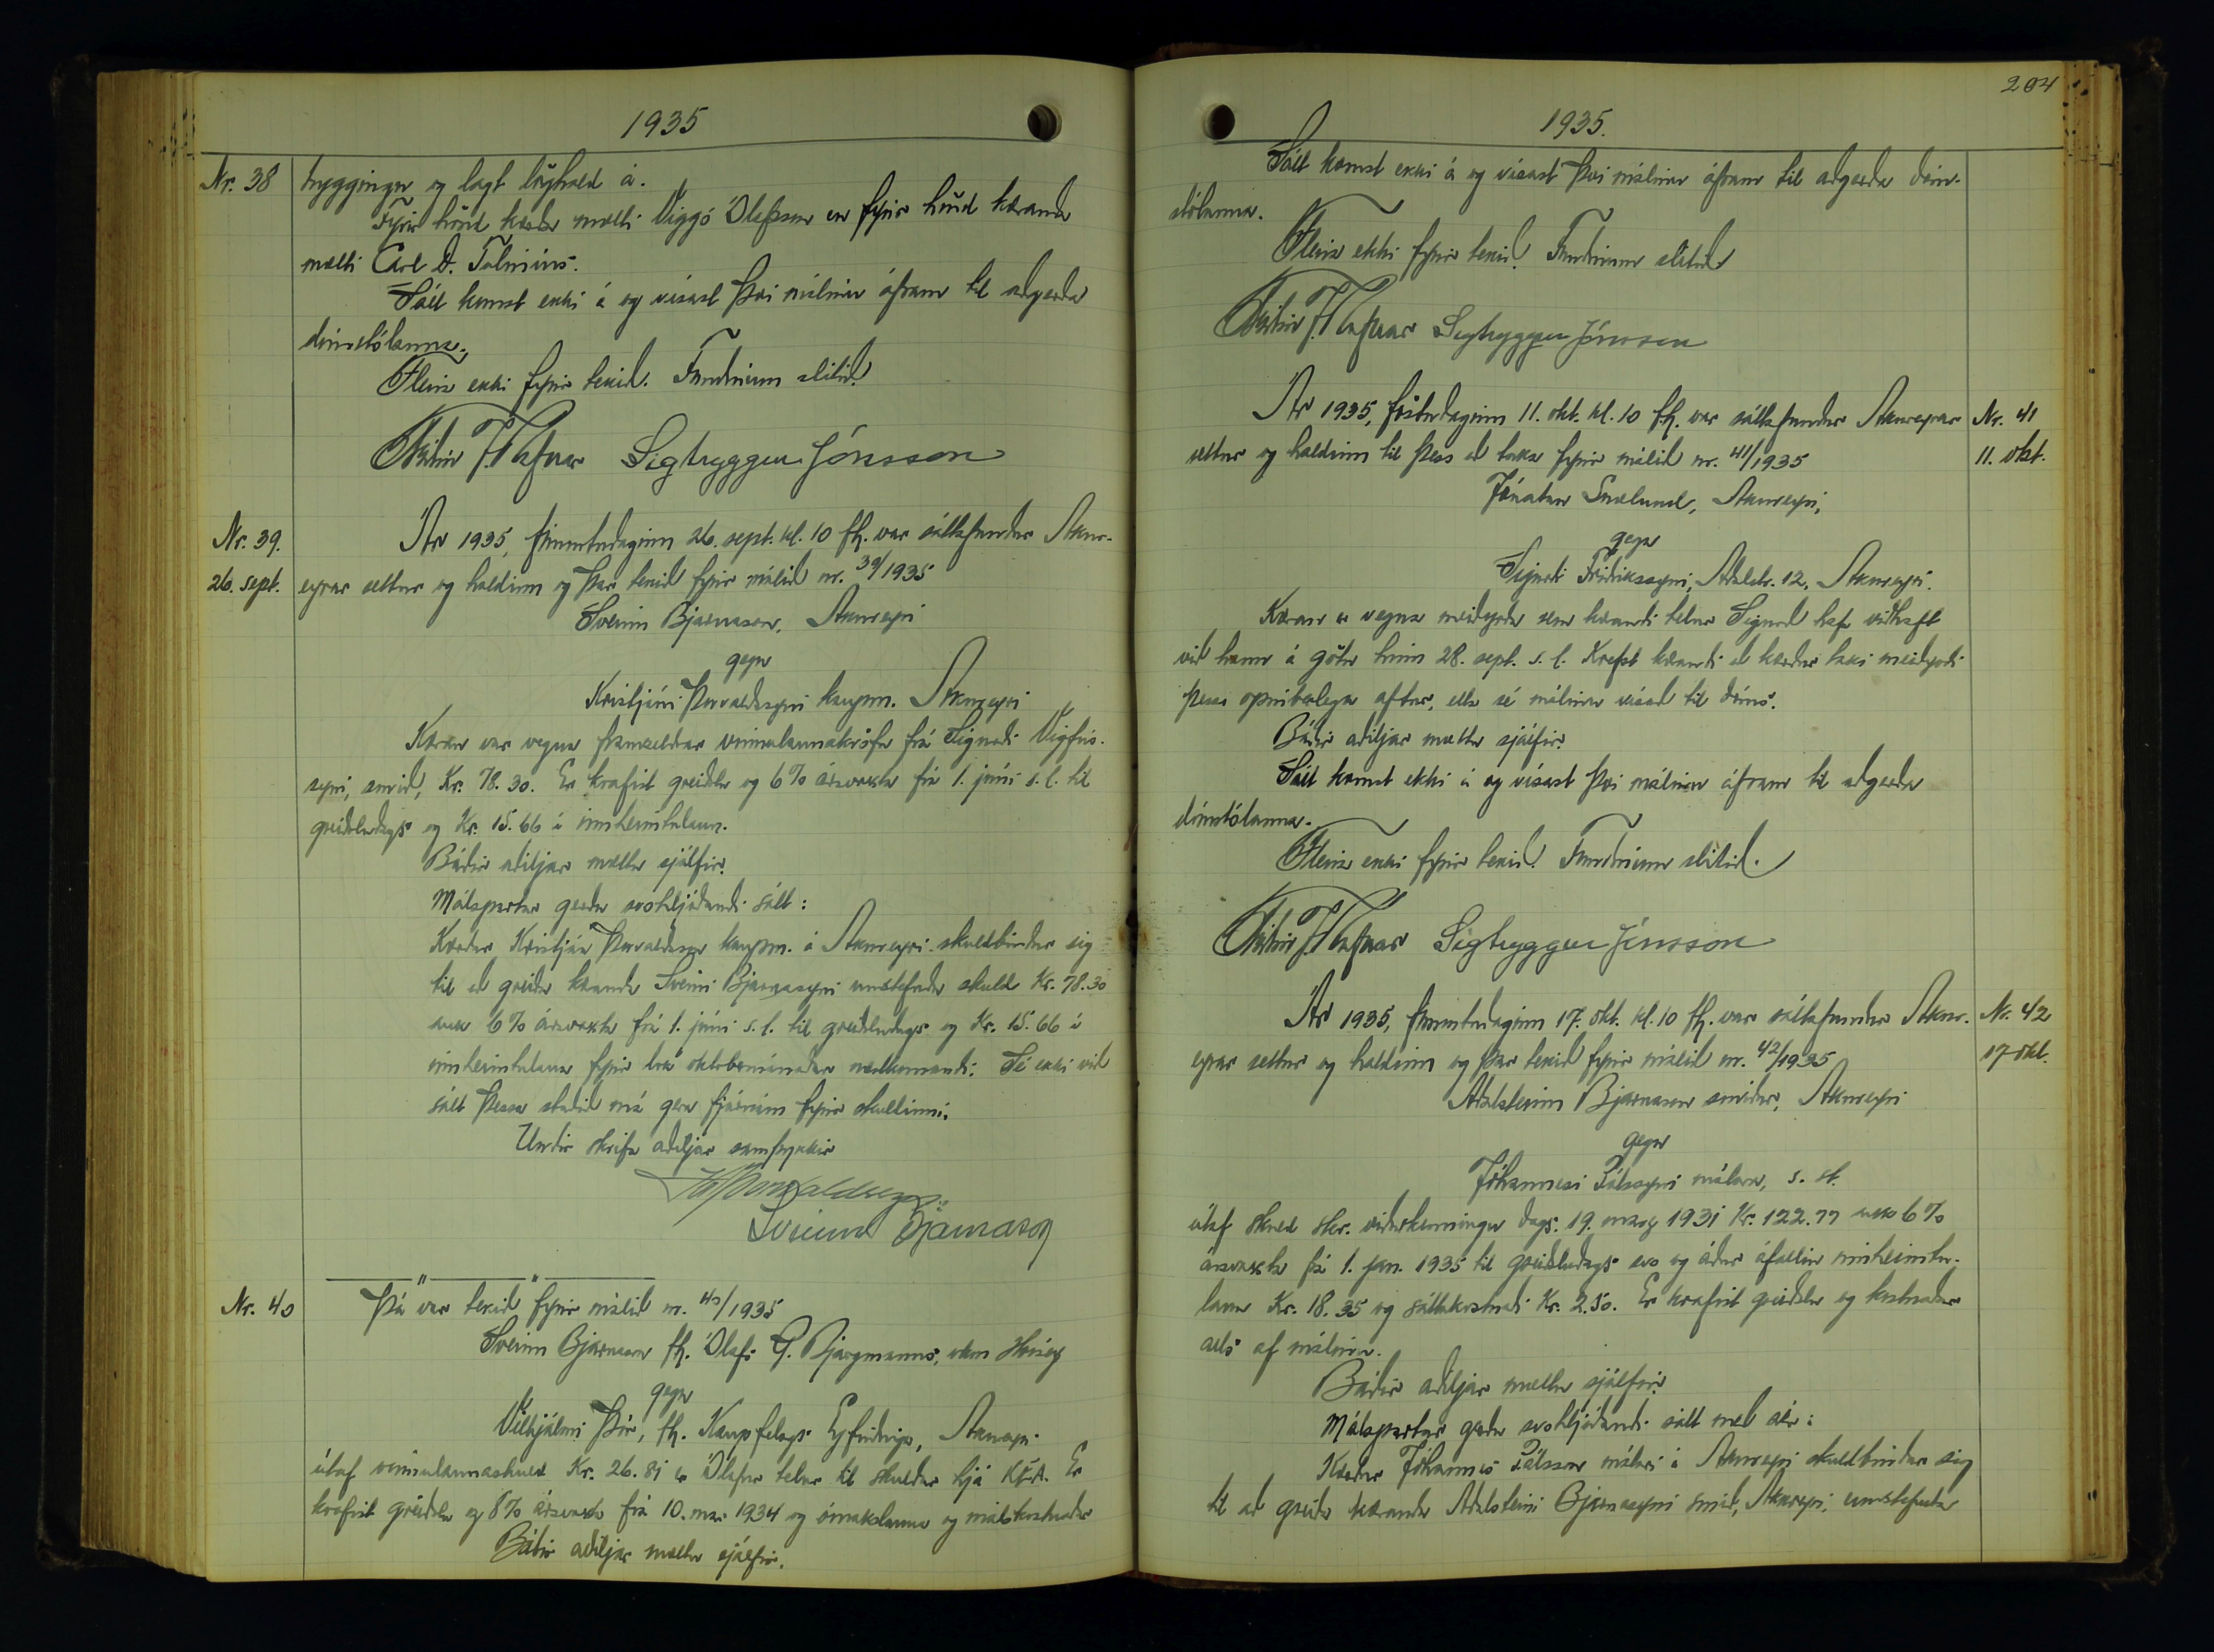 1935
Nr. 38
tryggingu og lagt löghald á.
Fyrir hönd kærða mætti Viggó Ólafsson en fyrir hönd kæranda
mætti Carl D. Tulinius.
Sátt komst ekki á og vísast því málinu áfram til aðgerða
dómstólanna.
Fleira ekki fyrir tekið. Fundinum slitið.
Sigtryggur Jónsson
Nr. 39.
26. sept.
Ár 1935, fimmtudaginn 26. sept. kl. 10 fh. var sáttafundur Akur-
eyrar settur og haldinn og þar tekið fyrir málið nr. 39/1935
Sveinn Bjarnason, Akureyri
gegn
Kristjáni Þorvaldssyni kaupm. Akureyri
Kæran var vegna framseldrar vinnulaunakröfu frá Sigurði Vigfús-
syni, smið, Kr. 78.30. Er krafist greiðslu og 6% ársvaxta frá 1. júní s.l. til
greiðsludags og Kr. 15.66 í innheimtulaun.
Báðir aðiljar mættu sjálfir.
Málspartar gerðu svohljóðandi sátt:
Kærður Kristján Þorvaldsson kaupm. á Akureyri skuldbindur sig
til að greiða kæranda Sveini Bjarnasyni umstefnda skuld Kr. 78.30
auk 6% ársvaxta frá 1. júní s.l. til greiðsludags og Kr. 15.66 í
innheimtulaun fyrir lok októbermánaðar næstkomandi. Sé ekki við
sátt þessa staðið má gera fjárnám fyrir skuldinni.
Undir skrifa aðiljar samþykkir
Kr Þorvaldsson
Sveinn Bjarnason
Nr. 40
Þá var tekið fyrir málið nr. 40/1935
Sveinn Bjarnason fh. Ólafs G. Bjargmanns,
gegn
Vilhjálmi Þór, fh. Kaupfélags Eyfirðinga, Akureyri
útaf vinnulaunaskuld Kr. 26.81 er Ólafur telur til skuldar hjá KEA. Er
krafist greiðslu og 8% ársvaxta frá 10. mar 1934 og ómakslauna og málskostnaðar
Báðir aðiljar mættu sjálfir.
204
1935.
Sátt komst ekki á og vísast því málinu áfram til aðgerða dóm-
stólanna.
Fleira ekki fyrir tekið. Fundinum slitið
Sigtryggur Jónsson
Nr. 41
11. okt.
Ár 1935, föstudaginn 11. okt. kl. 10 fh. var sáttafundur Akureyrar
settur og haldinn til þess að taka fyrir málið nr. 41/1935
Jónatan Snælund, Akureyri,
gegn
Sigurði Friðrikssyni, Aðalstr. 12, Akureyri.
Kæran er vegna meiðyrða sem kærandi telur Sigurð hafa viðhaft
við hann á götu hinn 28. sept. s.l. Krefst kærandi að kærður taki meiðyrði
þessi opinberlega aftur, ella sé málinu vísað til dóms.
Báðir aðiljar mættu sjálfir.
Sátt komst ekki á og vísast því málinu áfram til aðgerða
dómstólanna.
Fleira ekki fyrir tekið. Fundinum slitið.
Sigtryggur Jónsson
Nr. 42
17. okt.
Ár 1935, fimmtudaginn 17. okt. kl. 10 fh. var sáttafundur Akur-
eyrar settur og haldinn og þar tekið fyrir málið nr. 42/1935
Aðalsteinn Bjarnason smiður, Akureyri
gegn
Jóhannesi Pálssyni málara, s. st.
útaf skuld skv. viðurkenningu dags. 19. marz 1931 Kr. 122.77 auk 6%
ársvaxta frá 1. jan. 1935 til greiðsludags svo og áður áfallin innheimtu-
laun Kr. 18.35 og sáttakostnaði Kr. 2.50. Er krafist greiðslu og kostnaðar
alls af málinu.
Báðir aðiljar mættu sjálfir.
Málspartar gerðu svohljóðandi sátt með sér:
Kærður Jóhannes Pálsson málari á Akureyri skuldbindur sig
til að greiða kæranda Aðalsteini Bjarnasyni smið, Akureyri, umstefnda